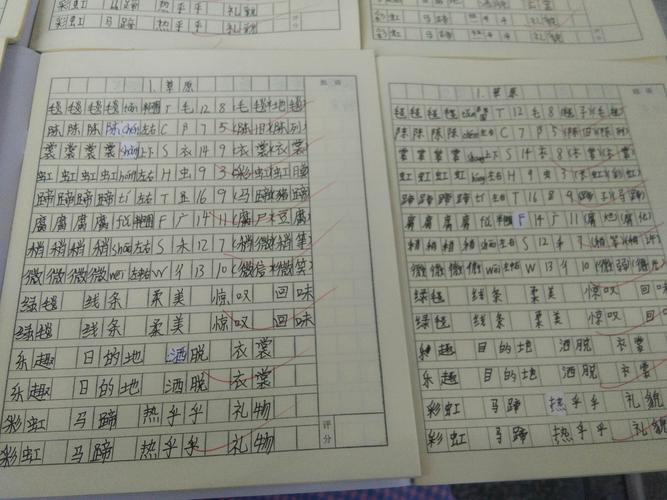 彩虹 马蹄 热乎乎 礼貌
彩虹 马蹄 热乎乎 礼貌
彩虹 马蹄 热乎乎 礼貌
1.草原
毯毯毯毯 tǎn 半包围 T 毛 12 8 (毛毯)(地毯)
陈陈陈陈 chén 左右 C 阝 7 5 (陈旧)(陈列)
裳裳裳裳 上下 S 衣 14 9 (衣裳)(衣裳)
虹虹虹虹 hóng 左右 H 虫 9 3 (彩虹)
蹄蹄蹄蹄 tí 左右 T 16 9 (马蹄)(猪蹄)
腐腐腐腐 fǔ 半包围 F 广 14 11 (腐尸)(豆腐)
稍稍稍稍 shāo 左右 S 禾 12 7 (稍微)(稍等)
微微微微 wēi 左中右 W 彳 13 10 (微信)(微笑)
绿毯 线条 柔美 惊叹 回味
绿毯 线条 柔美 惊叹 回味
乐趣 目的地 洒脱 衣裳
乐趣 目的地 洒脱 衣裳
彩虹 马蹄 热乎乎 礼物
彩虹 马蹄 热乎乎 礼物
评分
1.草原
毯毯毯毯 T 12 毛 8
陈陈陈陈 chén 左右 C 7 阝 5 (陈旧)(陈列)
裳裳裳裳 上下 S 14 8 (衣裳)
虹虹虹虹 hóng 左右 H 9 虫 3 (彩虹)
蹄蹄蹄蹄 tí 左右 T 16 9 (蹄子)(马蹄)
腐腐腐腐 fǔ 半包围 F 14 广 11 (腐烂)(腐化)
稍稍稍稍 shāo 左右 S 12 7 (稍等)(稍许)
微微微微 wēi 左中右 W 13 彳 10 (微弱)
绿毯 线条 柔美 惊叹 回
绿毯 线条 柔美 惊叹 回
乐趣 目的地 洒脱 衣裳
乐趣 目的地 洒脱 衣裳
彩虹 马蹄 热乎乎 礼貌
彩虹 马蹄 热乎乎 礼貌